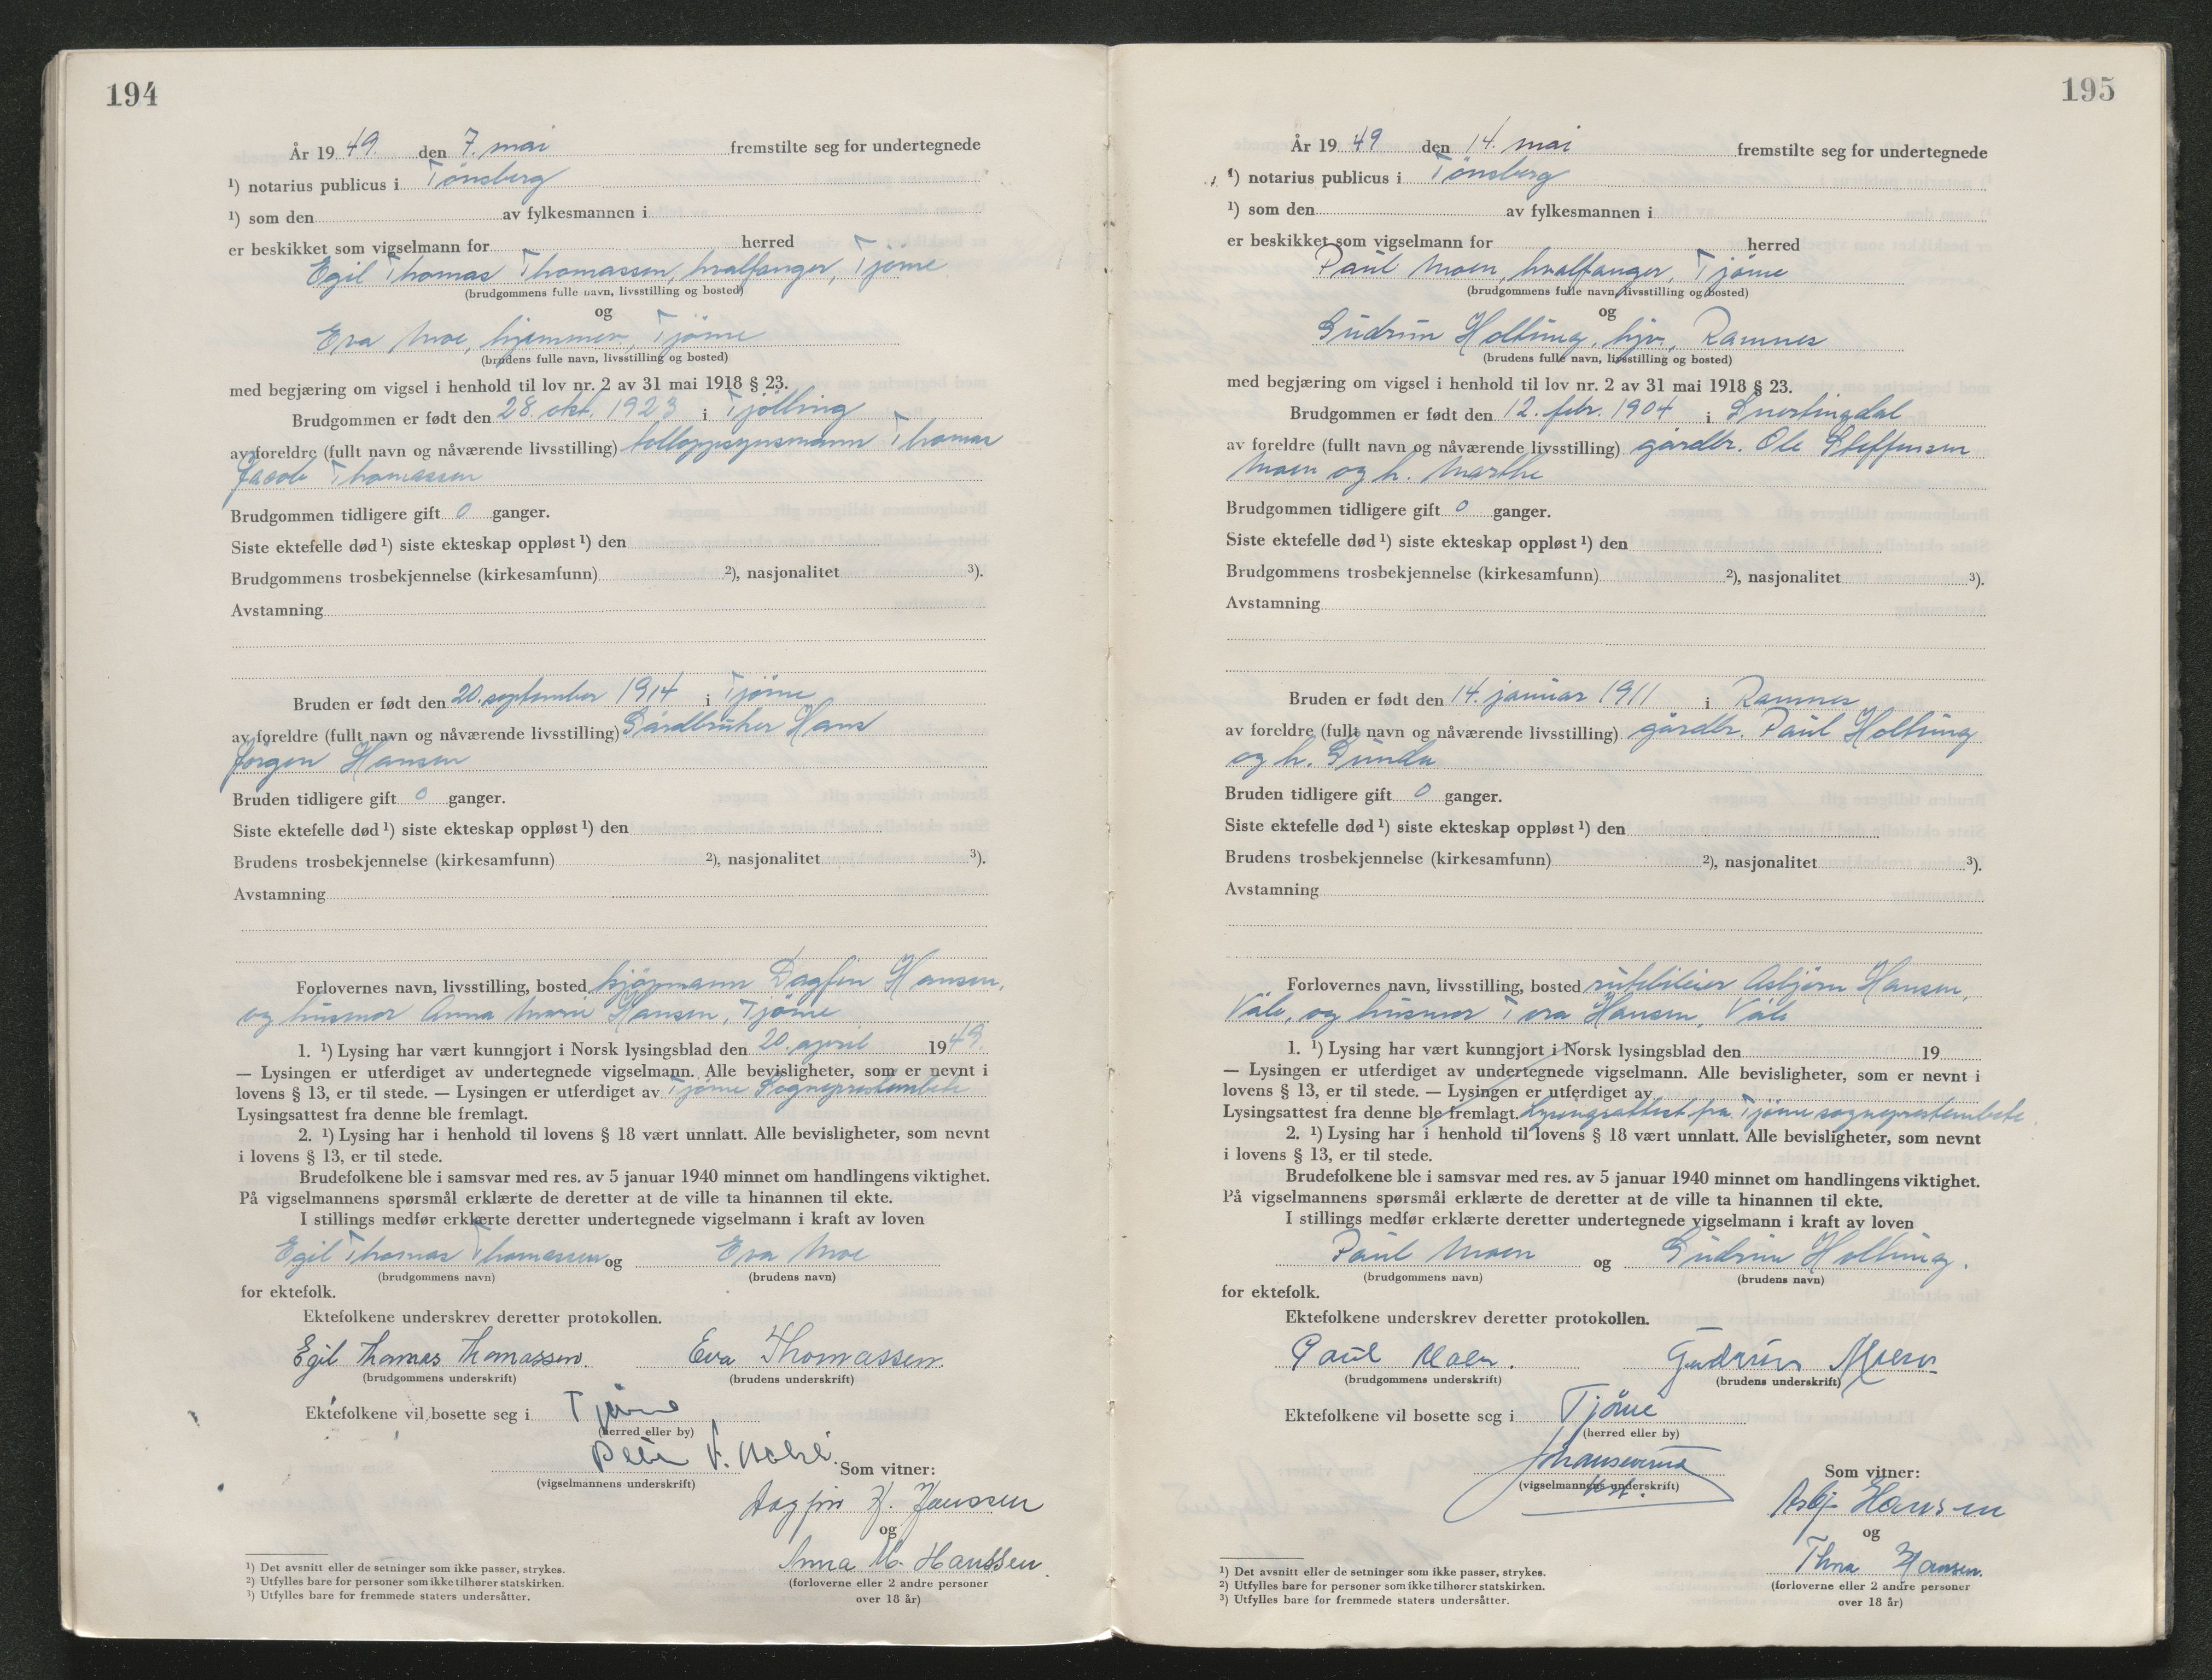 194
År 1949. den 7. mai fremstilte seg for undertegnede
¹) notarius publicus i Tönsberg
¹) som den av fylkesmannen i
er beskikket som vigselmann for herred
Egil Thomas Thomassen, hvalfanger, Tjöme
(brudgommens fulle navn, livsstilling og bosted)
og
Eva Moe, hjemmev, Tjöme
(brudens fulle navn, livsstilling og bosted)
med begjæring om vigsel i henhold til lov nr. 2 av 31 mai 1918 § 23.
Brudgommen er født den 28. okt. 1923 i Tjölling
av foreldre (fullt navn og nåværende livsstilling) tolloppsynsmann Thomas
Jacob Thomassen
Brudgommen tidligere gift 0 ganger.
Siste ektefelle død ¹) siste ekteskap oppløst ¹) den
Brudgommens trosbekjennelse (kirkesamfunn) ²), nasjonalitet ³).
Avstamning
Bruden er født den 20. september 1914 i Tjöme
av foreldre (fullt navn og nåværende livsstilling) Gårdbruker Hans
Jørgen Hansen
Bruden tidligere gift 0 ganger.
Siste ektefelle død ¹) siste ekteskap oppløst ¹) den
Brudens trosbekjennelse (kirkesamfunn) ²), nasjonalitet ³).
Avstamning
Forlovernes navn, livsstilling, bosted kjöpmann Dagfin Hansen,
og husmor Anna Marie Hansen, Tjöme
1. ¹) Lysing har vært kunngjort i Norsk lysingsblad den 20. april 1949.
— Lysingen er utferdiget av undertegnede vigselmann. Alle bevisligheter, som er nevnt i
lovens § 13, er til stede. — Lysingen er utferdiget av Tjöme Sogneprestembete
Lysingsattest fra denne ble fremlagt.
2. ¹) Lysing har i henhold til lovens § 18 vært unnlatt. Alle bevisligheter, som nevnt
i lovens § 13, er til stede.
Brudefolkene ble i samsvar med res. av 5 januar 1940 minnet om handlingens viktighet.
På vigselmannens spørsmål erklærte de deretter at de ville ta hinannen til ekte.
I stillings medfør erklærte deretter undertegnede vigselmann i kraft av loven
Egil Thomas Thomassen og Eva Moe
(brudgommens navn) (brudens navn)
for ektefolk.
Ektefolkene underskrev deretter protokollen.
Egil Thomas Thomassen. Eva Thomassen.
(brudgommens underskrift) (brudens underskrift)
Ektefolkene vil bosette seg i Tjöme
(herred eller by)
(vigselmannens underskrift)
Som vitner:
Dagfin H. Hanssen
og
Anna M. Hanssen.
(forloverne eller 2 andre personer
over 18 år)
¹) Det avsnitt eller de setninger som ikke passer, strykes.
²) Utfylles bare for personer som ikke tilhører statskirken.
³) Utfylles bare for fremmede staters undersåtter.
195
År 1949 den 14. mai fremstilte seg for undertegnede
¹) notarius publicus i Tönsberg
¹) som den av fylkesmannen i
er beskikket som vigselmann for herred
Paul Moen, hvalfanger, Tjöme
(brudgommens fulle navn, livsstilling og bosted)
og
Gudrun Holtung, hjv., Ramnes
(brudens fulle navn, livsstilling og bosted)
med begjæring om vigsel i henhold til lov nr. 2 av 31 mai 1918 § 23.
Brudgommen er født den 12. febr. 1904 i Snertingdal
av foreldre (fullt navn og nåværende livsstilling) gårdbr. Ole Steffensen
Moen og h. Marthe
Brudgommen tidligere gift 0 ganger.
Siste ektefelle død ¹) siste ekteskap oppløst ¹) den
Brudgommens trosbekjennelse (kirkesamfunn) ²), nasjonalitet ³).
Avstamning
Bruden er født den 14. januar 1911 i Ramnes
av foreldre (fullt navn og nåværende livsstilling) gårdbr. Paul Holtung
og h. Gunda
Bruden tidligere gift 0 ganger.
Siste ektefelle død ¹) siste ekteskap oppløst ¹) den
Brudens trosbekjennelse (kirkesamfunn) ²), nasjonalitet ³).
Avstamning
Forlovernes navn, livsstilling, bosted rutebileier Asbjörn Hansen,
Våle, og husmor Tora Hansen, Våle
1. ¹) Lysing har vært kunngjort i Norsk lysingsblad den 19
— Lysingen er utferdiget av undertegnede vigselmann. Alle bevisligheter, som er nevnt i
lovens § 13, er til stede. — Lysingen er utferdiget av
Lysingsattest fra denne ble fremlagt. Lysingsattest fra Tjöme sogneprestembete.
2. ¹) Lysing har i henhold til lovens § 18 vært unnlatt. Alle bevisligheter, som nevnt
i lovens § 13, er til stede.
Brudefolkene ble i samsvar med res. av 5 januar 1940 minnet om handlingens viktighet.
På vigselmannens spørsmål erklærte de deretter at de ville ta hinannen til ekte.
I stillings medfør erklærte deretter undertegnede vigselmann i kraft av loven
Paul Moen og Gudrun Holtung.
(brudgommens navn) (brudens navn)
for ektefolk.
Ektefolkene underskrev deretter protokollen.
Paul Moen. Gudrun Moen
(brudgommens underskrift) (brudens underskrift)
Ektefolkene vil bosette seg i Tjöme
(herred eller by)
(vigselmannens underskrift)
Som vitner:
Asbj Hansen
og
Thora Hansen.
(forloverne eller 2 andre personer
over 18 år)
¹) Det avsnitt eller de setninger som ikke passer, strykes.
²) Utfylles bare for personer som ikke tilhører statskirken.
³) Utfylles bare for fremmede staters undersåtter.